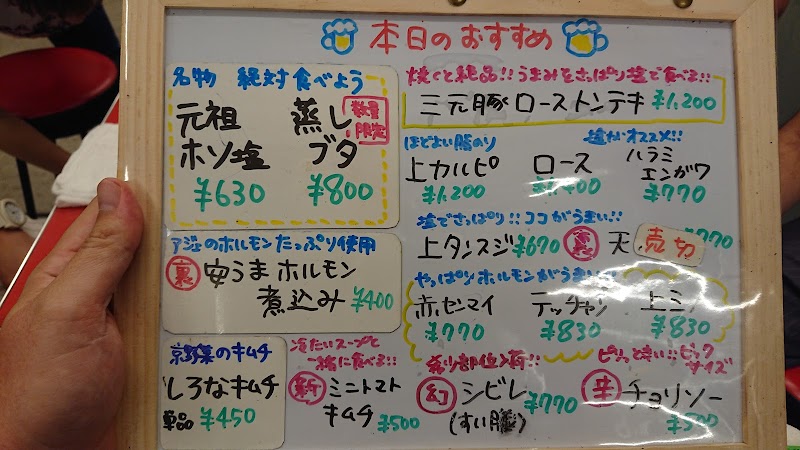 本日のおすすめ
名物 絶対食べよう
元祖 ホソ塩
¥630
蒸しブタ
数量限定
¥800
焼くと絶品!!うまみをさっぱり塩で食べる!!
三元豚ローストンテキ ¥1,200
ほどよい脂のり
上カルビ
¥1,200
ロース
塩がオススメ!!
ハラミエンガワ
¥770
塩でさっぱり!!ココがうまい!!
上タンスジ ¥670
裏 天
売切
ア注のホルモンたっぷり使用
裏 安うまホルモン
煮込み ¥400
やっぱりホルモンがうまい!!
赤センマイ
¥770
テッチャン
¥830
上ミノ
¥830
京野菜のキムチ
しろなキムチ
単品 ¥450
冷たいスープと
一緒に食べる!!
新 ミニトマト
キムチ ¥500
希少部位入荷!!
幻 シビレ
(すい臓)
¥770
ピリッと辛い!!ビックサイズ
辛 チョリソー
¥500